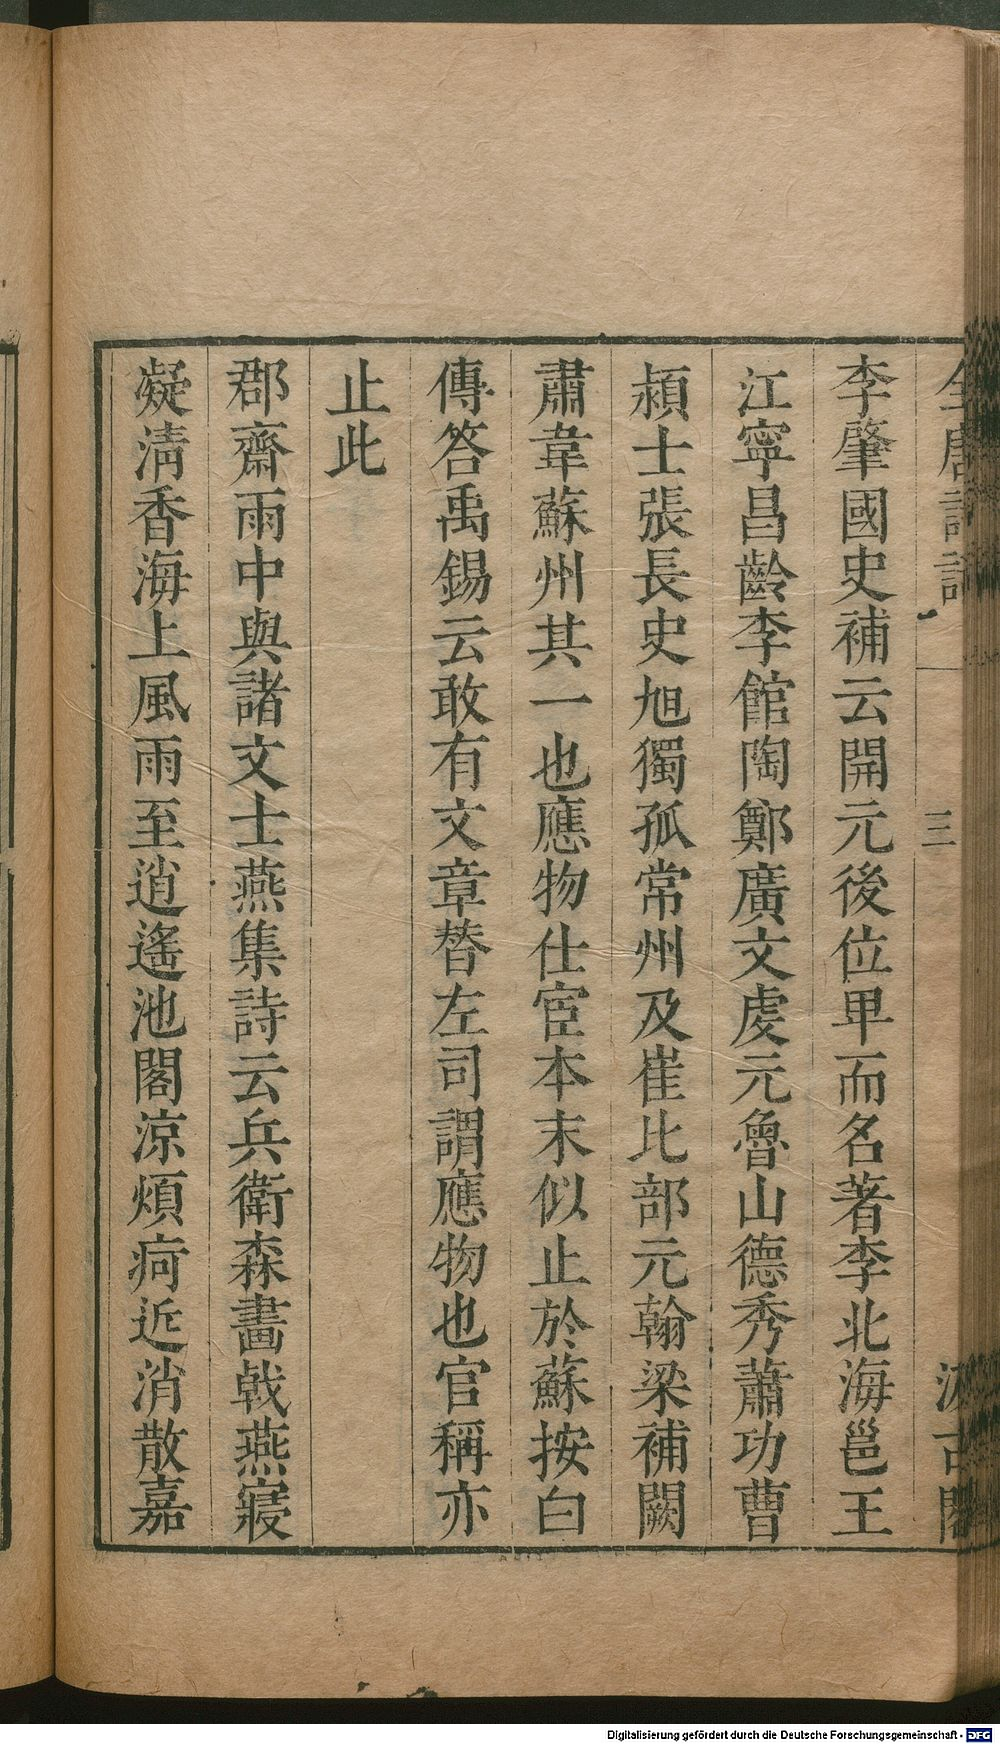 李肇國史補云開元後位卑而名著李北海邕王
江寧昌齡李館陶鄭廣文虔元魯山德秀蕭功曹
頴士張長史旭獨孤常州及崔比部元翰梁補闕
肅韋蘇州其一也應物仕宦本末似止於蘇按白
傳答禹錫云敢有文章替左司謂應物也官稱亦
止此
郡齋雨中與諸文士燕集詩云兵衛森畫戟燕寢
凝淸香海上風雨至逍遙池閣涼煩疴近消散嘉
三
Digitalisierung gefördert durch die Deutsche Forschungsgemeinschaft - DFG